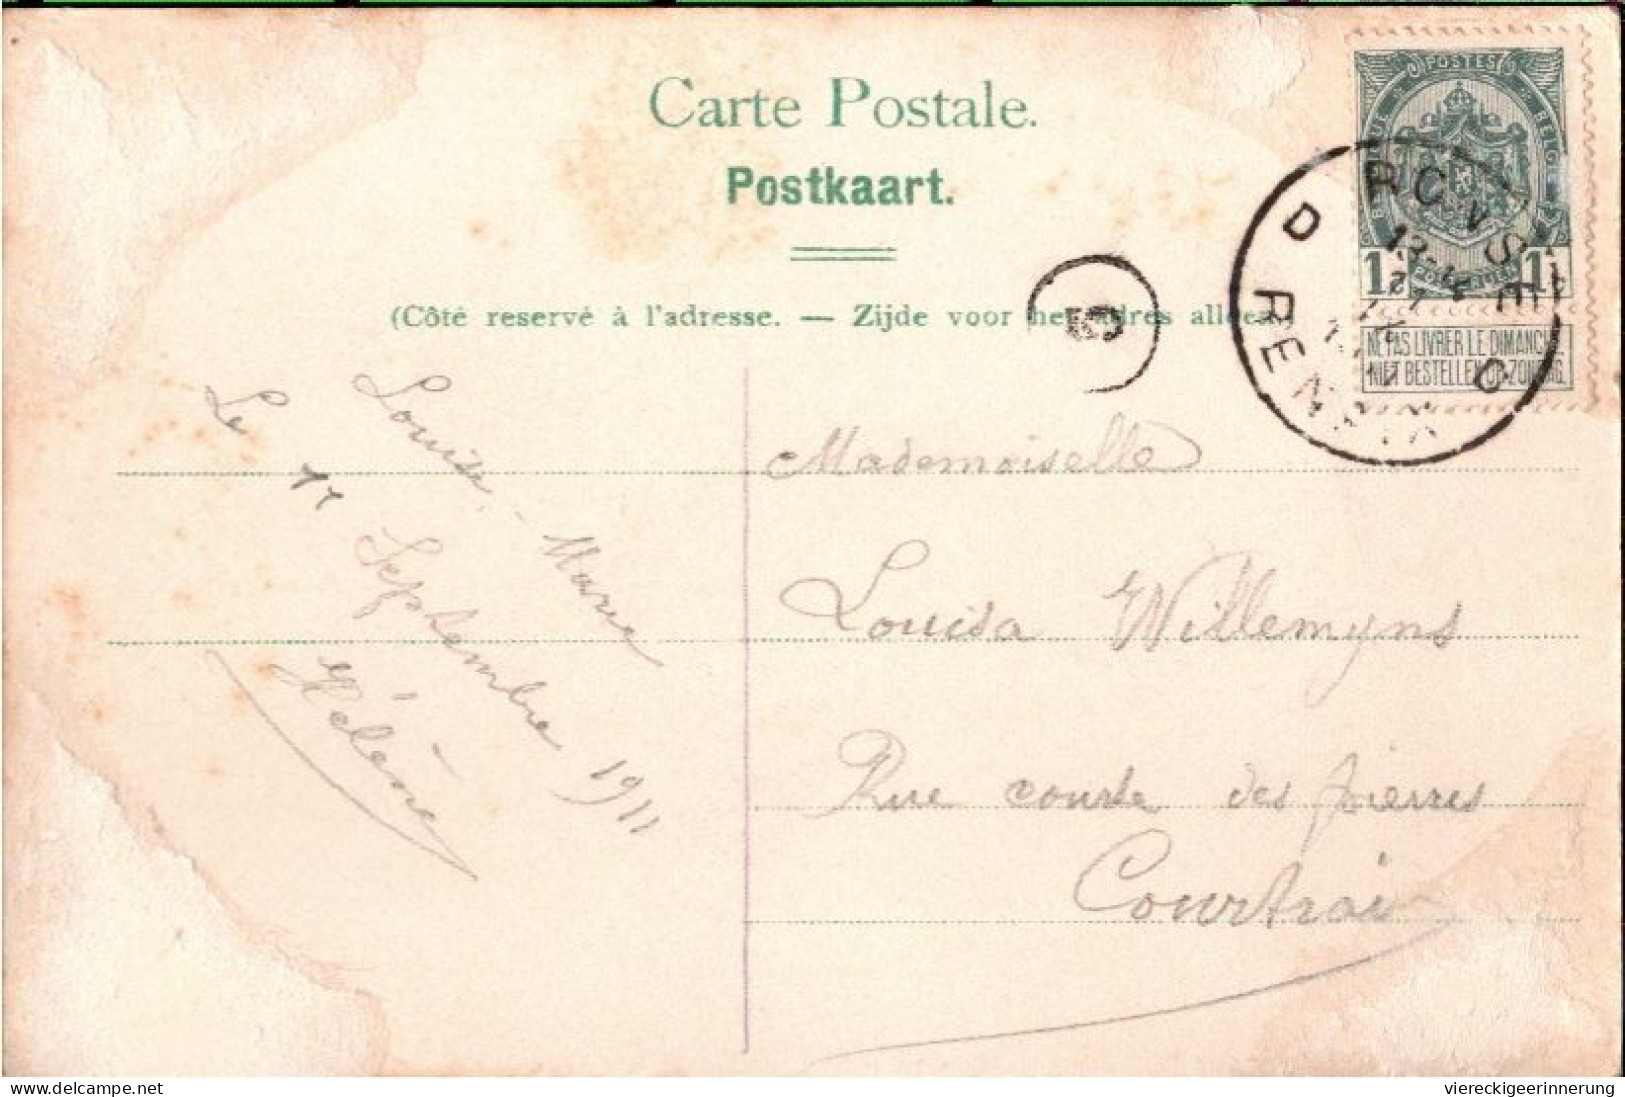 Carte Postale.
Postkaart.
(Côté reservé à l'adresse. — Zijde voor het adres alleen.)
POSTES
BELGIQUE
BELGIE
POSTERIJEN
1 1
NE PAS LIVRER LE DIMANCHE.
NIET BESTELLEN OP ZONDAG.
D RENAIX D RONSE
5
Louisa, - Marie
Le 11 Septembre 1911
Hélène
Mademoiselle
Louisa Willemyns
Rue courte des pierres
Courtrai
delcampe.net
viereckigeerinnerung